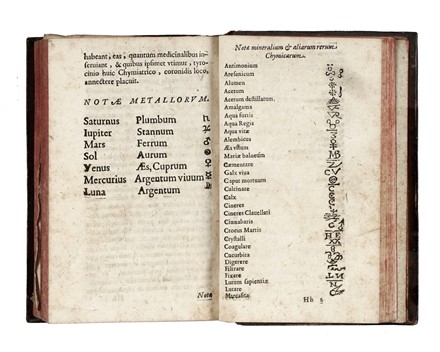 habeant, eas, quantum medicinalibus in-
seruiunt, & quibus ipsimet vtimur, tyro-
cinio huic Chymiatrico, coronidis loco,
annectere placuit.
NOTÆ METALLORVM.
Saturnus Plumbum ♄
Iupiter Stannum ♃
Mars Ferrum ♂
Sol Aurum ☉
Venus Æs, Cuprum ♀
Mercurius Argentum viuum ☿
Luna Argentum ☾
Notæ
Notæ mineralium & aliarum rerum
Chymicarum.
Antimonium
Arsenicum
Alumen
Acetum
Acetum destillatum
Amalgama
Aqua fortis
Aqua Regis
Aqua vitæ
Alembicus
Æs vstum
Mariæ balneum
Cæmentare
Calx viua
Caput mortuum
Calcinare
Calx
Cineres
Cineres Clauellati
Cinnabaris
Crocus Martis
Crystalli
Coagulare
Cucurbita
Digerere
Filtrare
Fixare
Lutum sapientiæ
Lutare
Marcasita
Hh